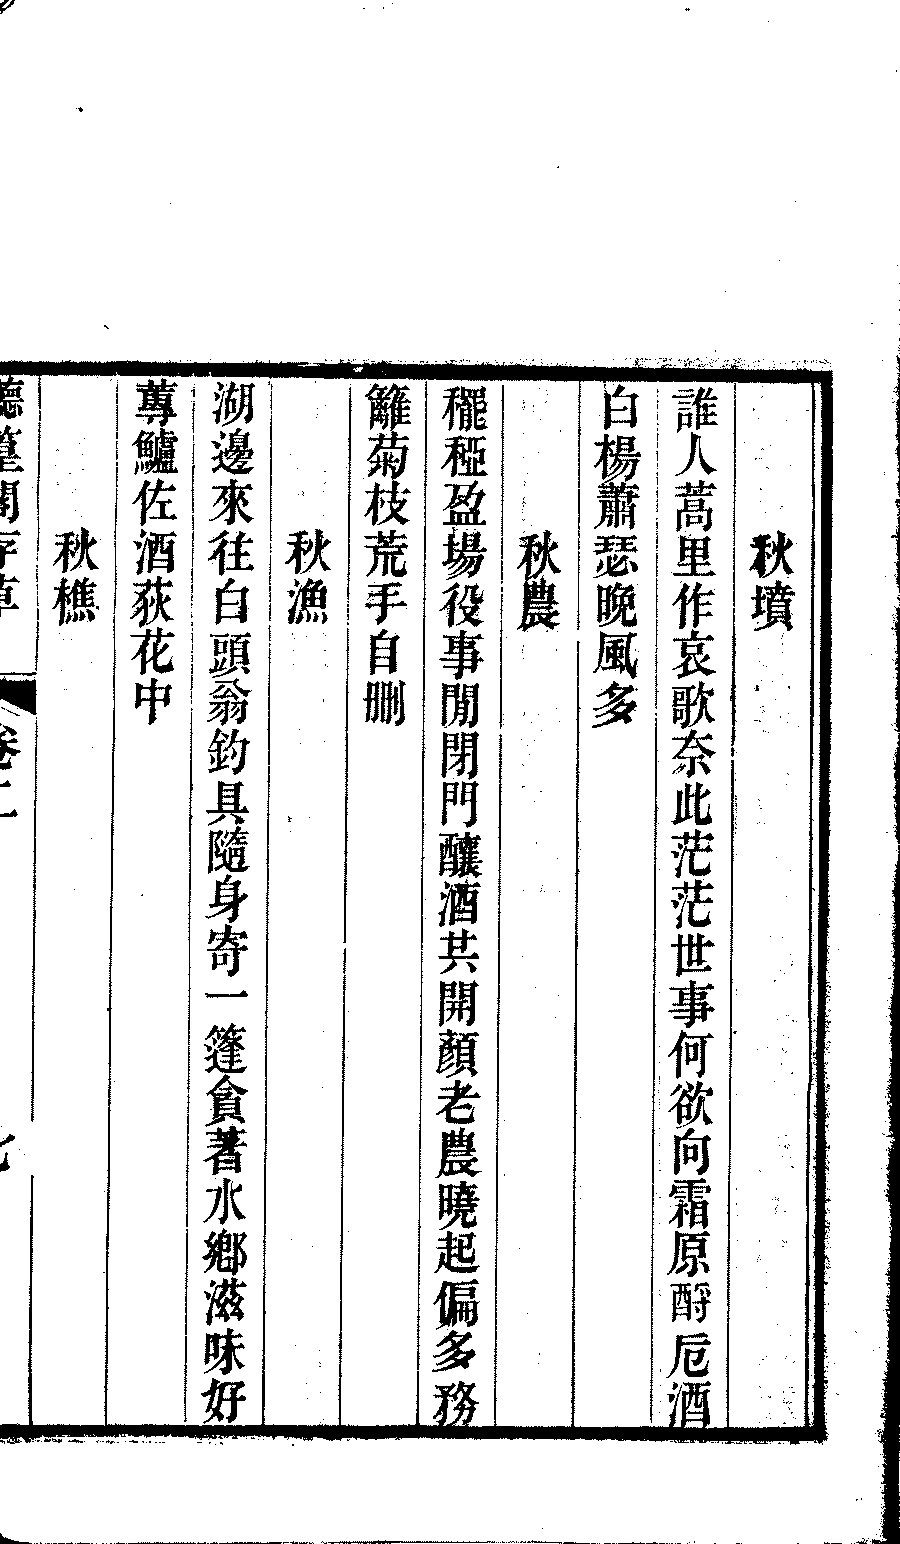 秋墳
誰人蒿里作哀歌奈此茫茫世事何欲向霜原酹卮酒
白楊蕭瑟晚風多
秋農
䆉稏盈場役事閒閉門釀酒共開顏老農曉起偏多務
籬菊枝荒手自刪
秋漁
湖邊來往白頭翁釣具隨身寄一篷貪著水鄉滋味好
蓴鱸佐酒荻花中
秋樵
聽篁閣存草
卷二
七